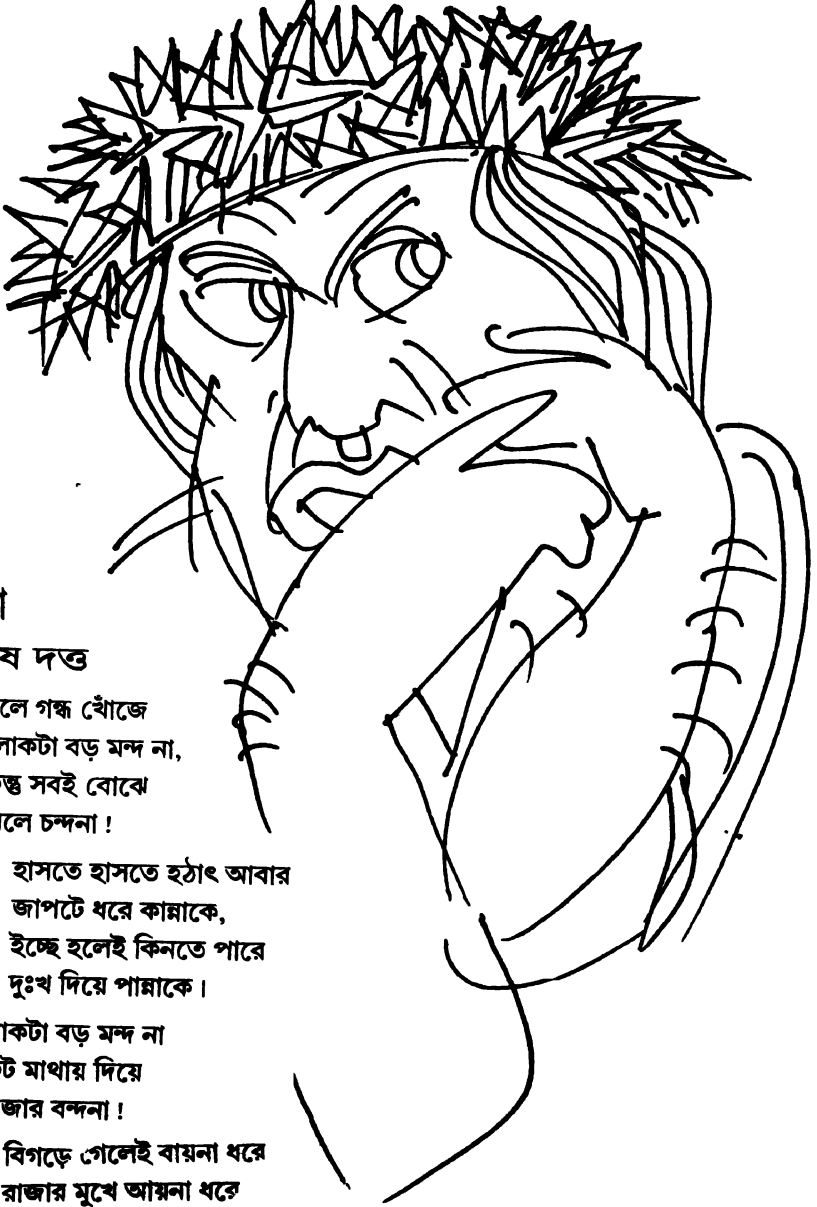 দত্ত
গন্ধ খোঁজে
বড় মন্দ না,
সবই বোঝে
চন্দনা !
হাসতে হাসতে হঠাৎ আবার
জাপটে ধরে কান্নাকে,
ইচ্ছে হলেই কিনতে পারে
দুঃখ দিয়ে পান্নাকে।
বড় মন্দ না
মাথায় দিয়ে
বন্দনা !
বিগড়ে গেলেই বায়না ধরে
রাজার মুখে আয়না ধরে